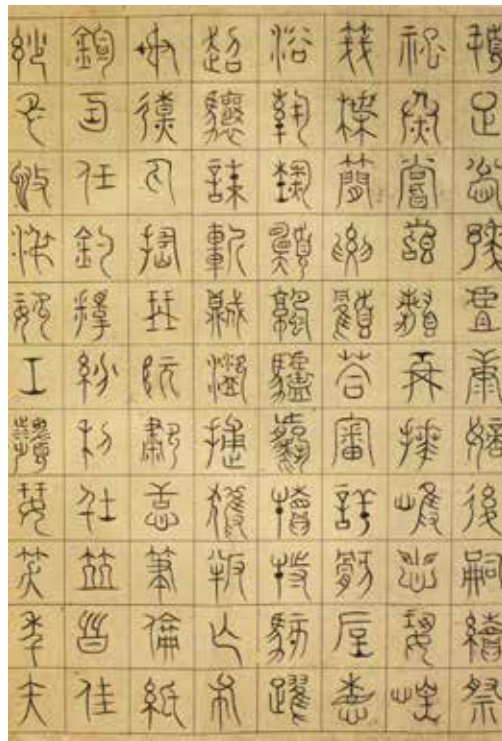 頓足悅豫且康嫡後嗣續祭
祀烝嘗稽顙再拜悚懼恐惶
箋牒簡要顧答審詳骸垢想
浴執熱願涼驢騾犢特駭躍
超驤誅斬賊盜捕獲叛亡布
射僚丸嵇琴阮嘯恬筆倫紙
鈞巧任釣釋紛利俗並皆佳
妙毛施淑姿工顰妍笑年矢